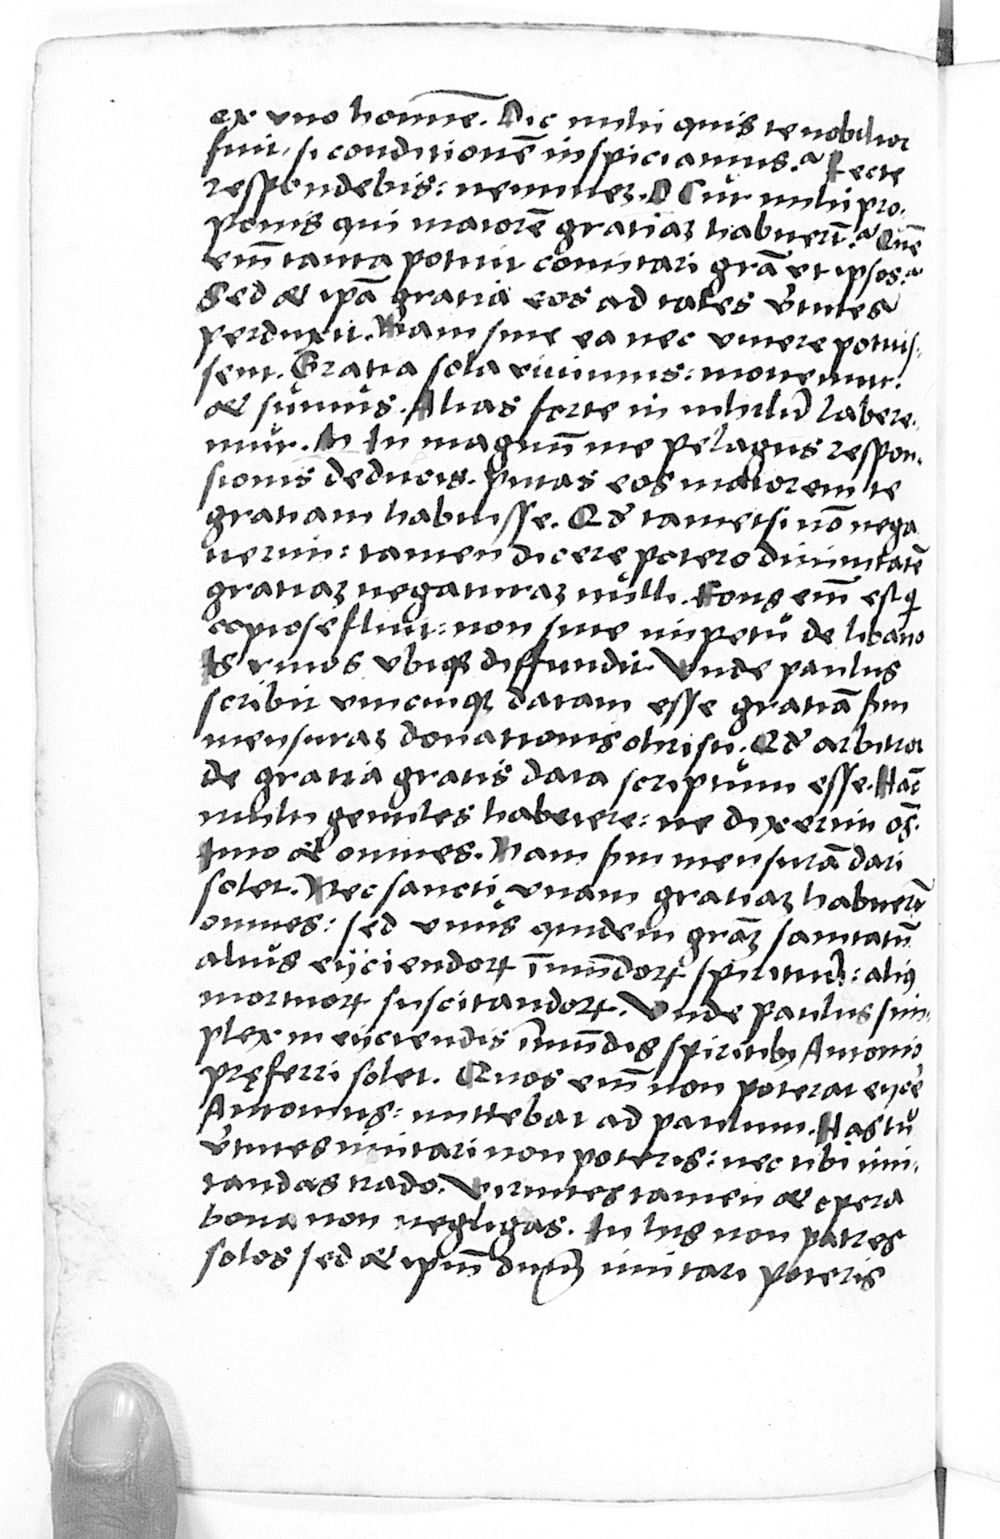 ex vno homīe. Dic mihi quis te nobilior
fuit, si conditionē inspiciamus? Recte
respondebis: neminē. D Cur mihi pro,
ponis qui maiorē gratiaʒ habuerūt? Quē
em̄ tanta potuit comitari grā vt ipsos?
Sed & ipā gratia eos ad tales v̓tutes
perduxit. Nam sine ea nec viuere potuis,
sent. Gratia sola viuimus: mouemur:
& sumus. Alias forte in nihilū labere,
mur. In magnū me pelagus respon,
sionis deducis. Putas eos maiorem te
gratiam habuisse. Qd̓ tametsi nō nega
uerim: tamen dicere potero diuinitatē
gratiaʒ negaturaʒ nulli. Fons em̄ est q̇
copiose fluit: non sine impetu de libano
Is riuos vbiqʒ diffundit. Vnde paulus
scribit vnicuiqʒ datam esse gratiā scd̄m
mensuraʒ donationis christi. Qd̓ arbitror
de gratia gratis data scriptum esse. Hāc
multi gentiles habuere: ne dixerim oēs.
Imo & omnes. Nam scd̄m mensurā dari
solet. Nec sancti vnam gratiaʒ habuerūt
omnes: sed vnus quidem grāʒ sanitatū
alius eijciendoꝝ īmūdoꝝ spirituū: aliꝰ
mortuoꝝ suscitandoꝝ. Vnde paulus sim,
plex in eijciendis īmūdis spiritibꝰ Antonio
pręferri solet. Quos em̄ non poterat eijcē
Antonius: mittebat ad paulum. Has tu
v̓tutes imitari non poteris: nec tibi imi,
tandas trado. Virtutes tamen & opera
bona non negligas. In his non patres
solos sed & ipm̄ dn̄m imitari poteris